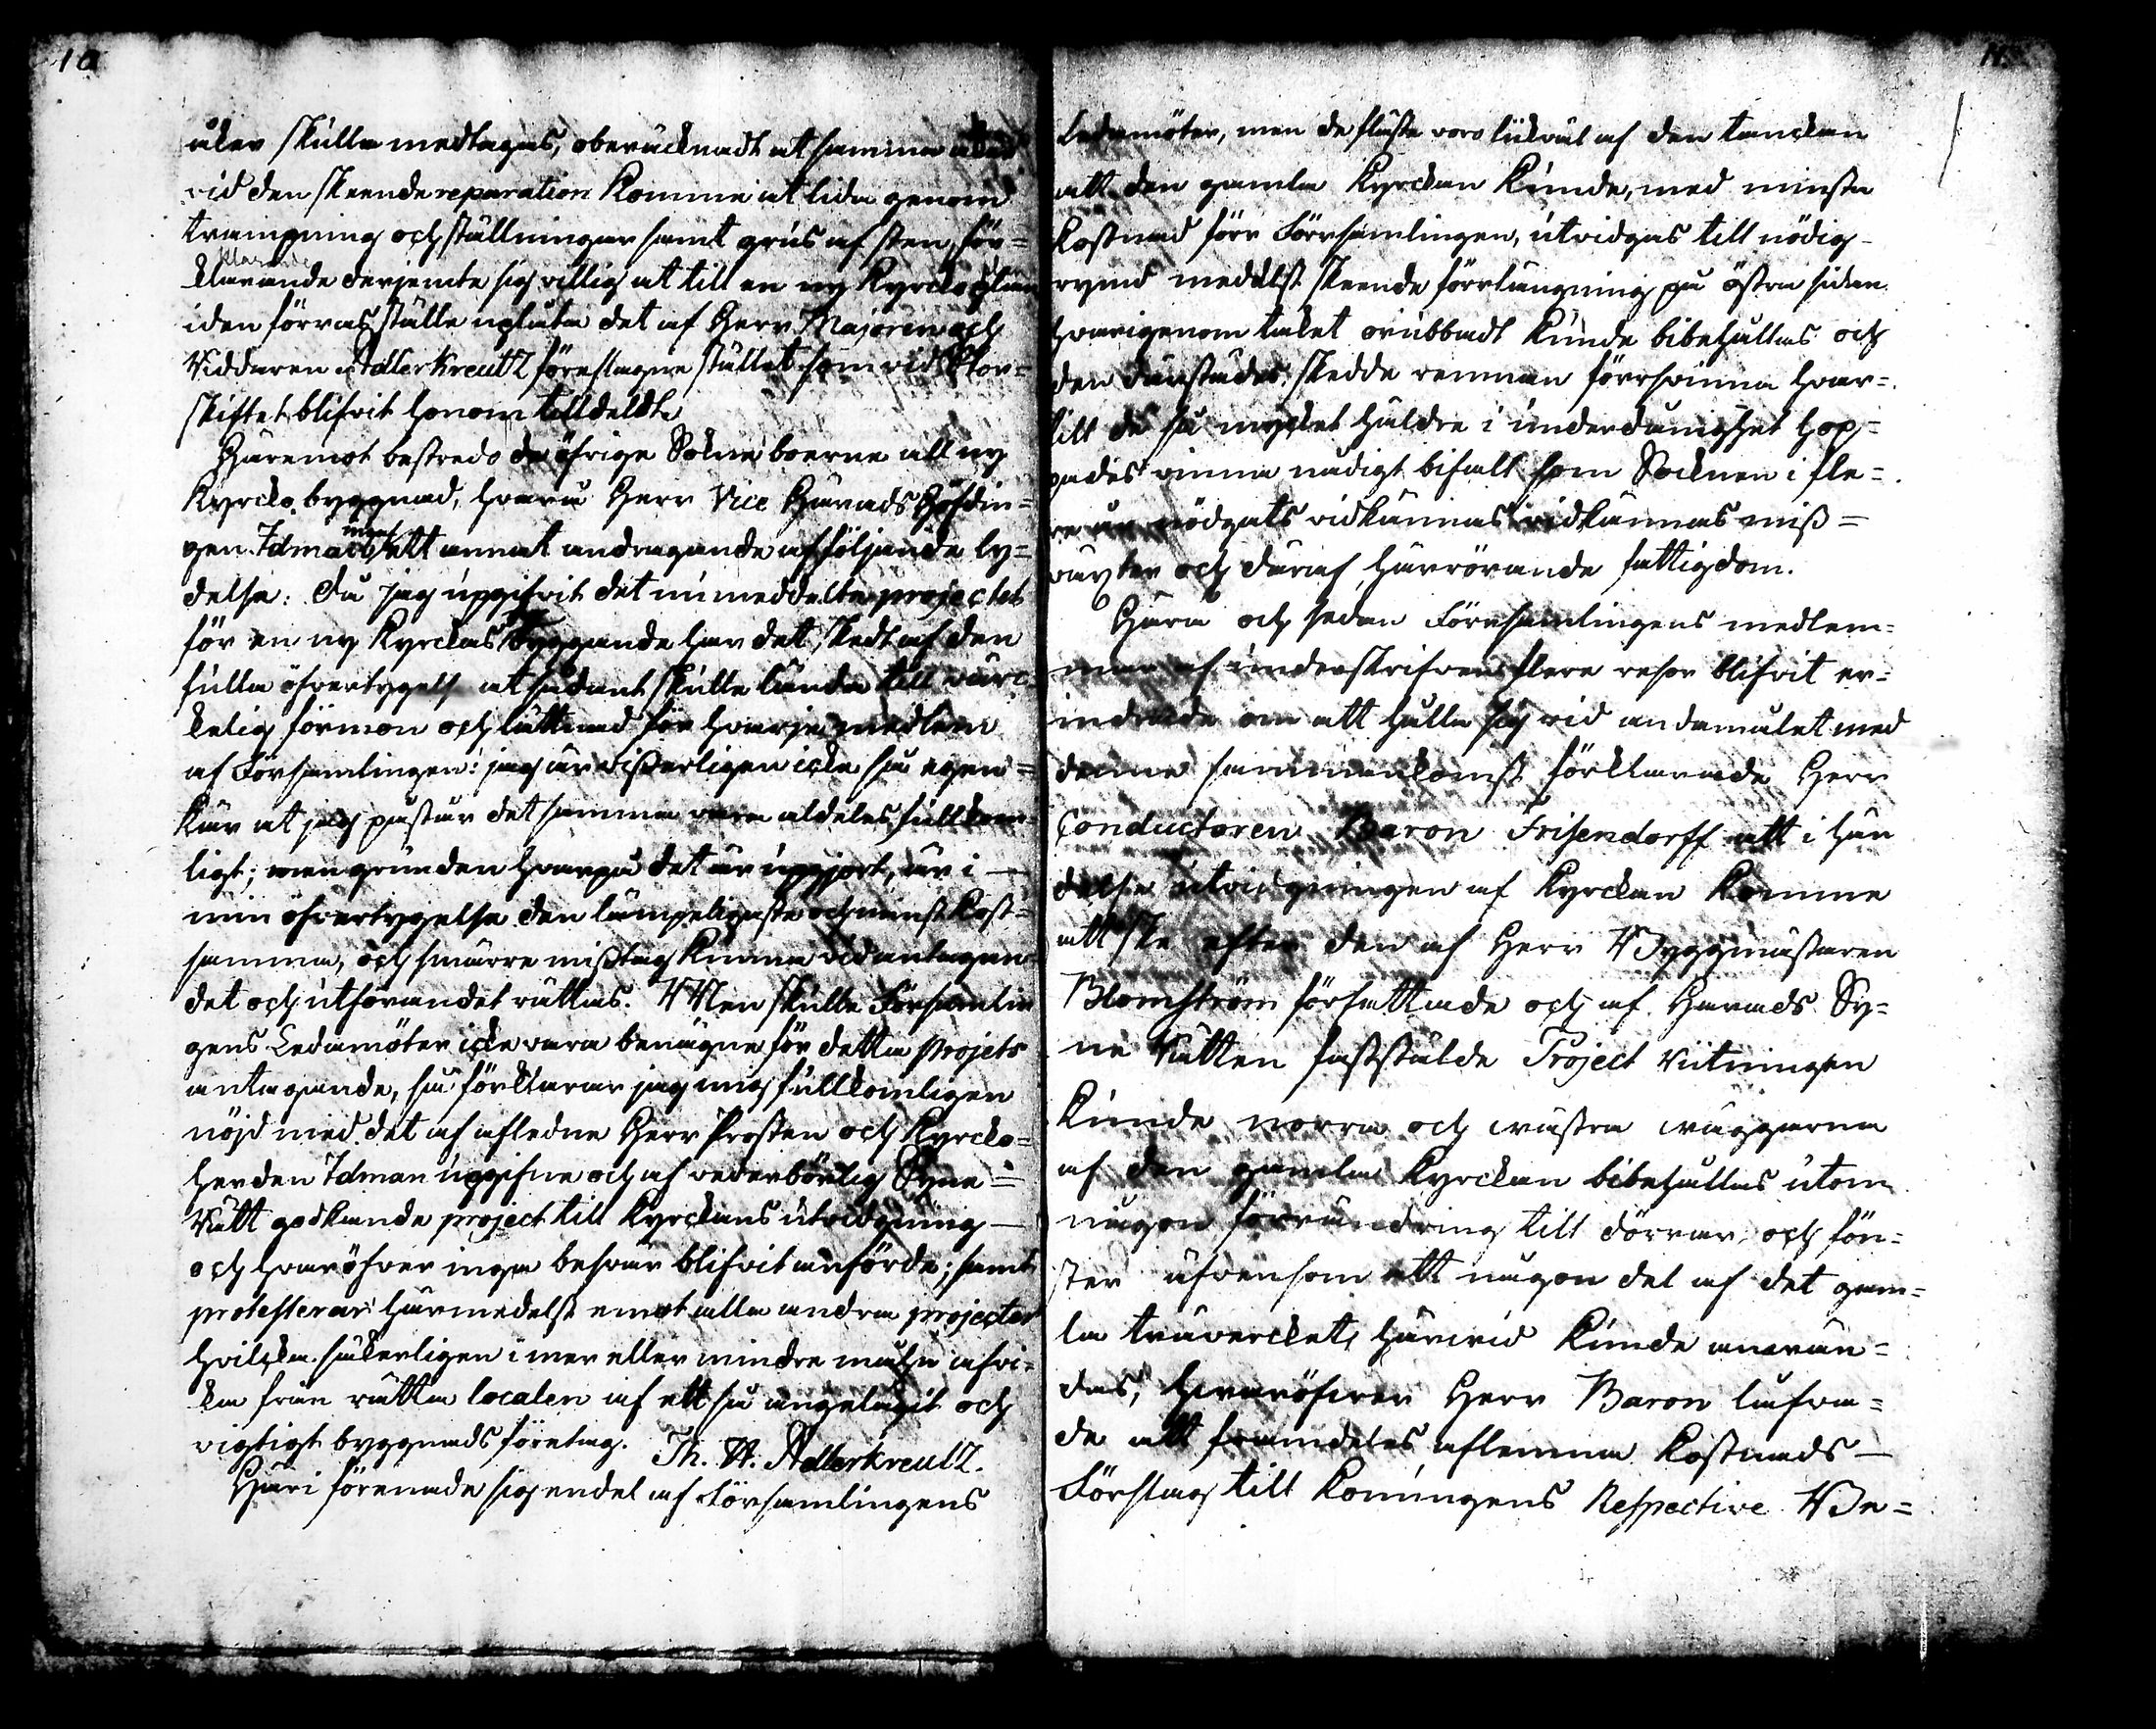 10
åker skulle medtagas, oberäcknadt at samma åker
vid den skeende reparation komme at lida genom
trampning och ställningar samt grus af sten, för=
klarande
klarande derjemte sig villig at till en ny Kyrcko plan
i den förras ställe uplåta det af Herr Majoren och
Riddaren Adlerkreutz föreslagne stället som vid Stor=
skiftet blifvit honom tilldeldt.
Häremot bestredo de öfrige Sokne boerne all ny
Kyrcko byggnad, hvarå Herr Vice Härads Höfdin=
gen Idman ett annat andragande af följande ly=
delse: Då jag upgifvit det nu meddelte projectet
för en ny Kyrckas byggande har det skedt af den
fulla öfvertygels at sådant skulle lända till värc=
kelig förmon och lättnad för hvarje medlem
af Församlingen: jag är visserligen icke så egen=
kär at jag påstår det samma vara aldeles fullkom
ligt; men grunden hvarpå det är upgjort, är i
min öfvertygelse den lämpeligaste och minst kost=
samma, och smärre misstag kunna vid antagan=
det och utförandet rättas. Men skulle Församlin
gens Ledamöter icke vara benägne för detta projets
antagande, så förklarar jag mig fullkomligen
nöjd med det af afledne Herr Prosten och Kyrcko=
herden Idman upgifne och af vederbörlig Syne=
Rätt godkände project till Kyrckans utvidgning
och hvaröfver inga besvär blifvit anförde; samt
protesterar härmedelst emot alla andra projecter
hvilcka säkerligen i mer eller mindre måhn afvi=
ka från rätta localen af ett så angelägit och
vigtigt byggnads företag. Th. A. Adlerkreutz.
Häri förenade sig endel af Församlingens
11.
Ledamöter, men de fläste voro likväl af den tanckan
att den gamla Kyrckan kunde, med minsta
kostnad förr Församlingen, utvidgas till nödig
rymd meddelst skeende förrlängning på östra sidan
hvarigenom taket orubbadt kunde bibehållas och
den därstädes skedde remnan förrsvinna hvar=
till de så mycket häldre i underdånighet hop=
pades vinna nådigt bifall som Socknen i fle=
re år nödgats vidkännas vidkännas miss=
växter och däraf härrörande fattigdom.
Härå och sedan Församlingens medlem=
mar af underskrifven flere resor blifvit er=
indrade om att hålla sig vid andamålet med
denne sammankomst förklarade Herr
Conductoren Baron Frisendorff att i hän
delse utvidgningen af Kyrckan komme
att ske efter den af Herr Byggmästaren
Blomström författade och af Härads Sy=
ne Rätten fastsälde Project Ritningen
kunde norra och wästra wäggarne
af den gamla Kyrckan bibehållas utom
någon förrändring till dörrar och fön=
ster äfvensom att någon del af det gam=
la träwercket, härvid kunde använ=
das, hwaröfwer Herr Baron lofva=
de att framdeles aflemna Kostnads
Förslag till Konungens Respective Be=